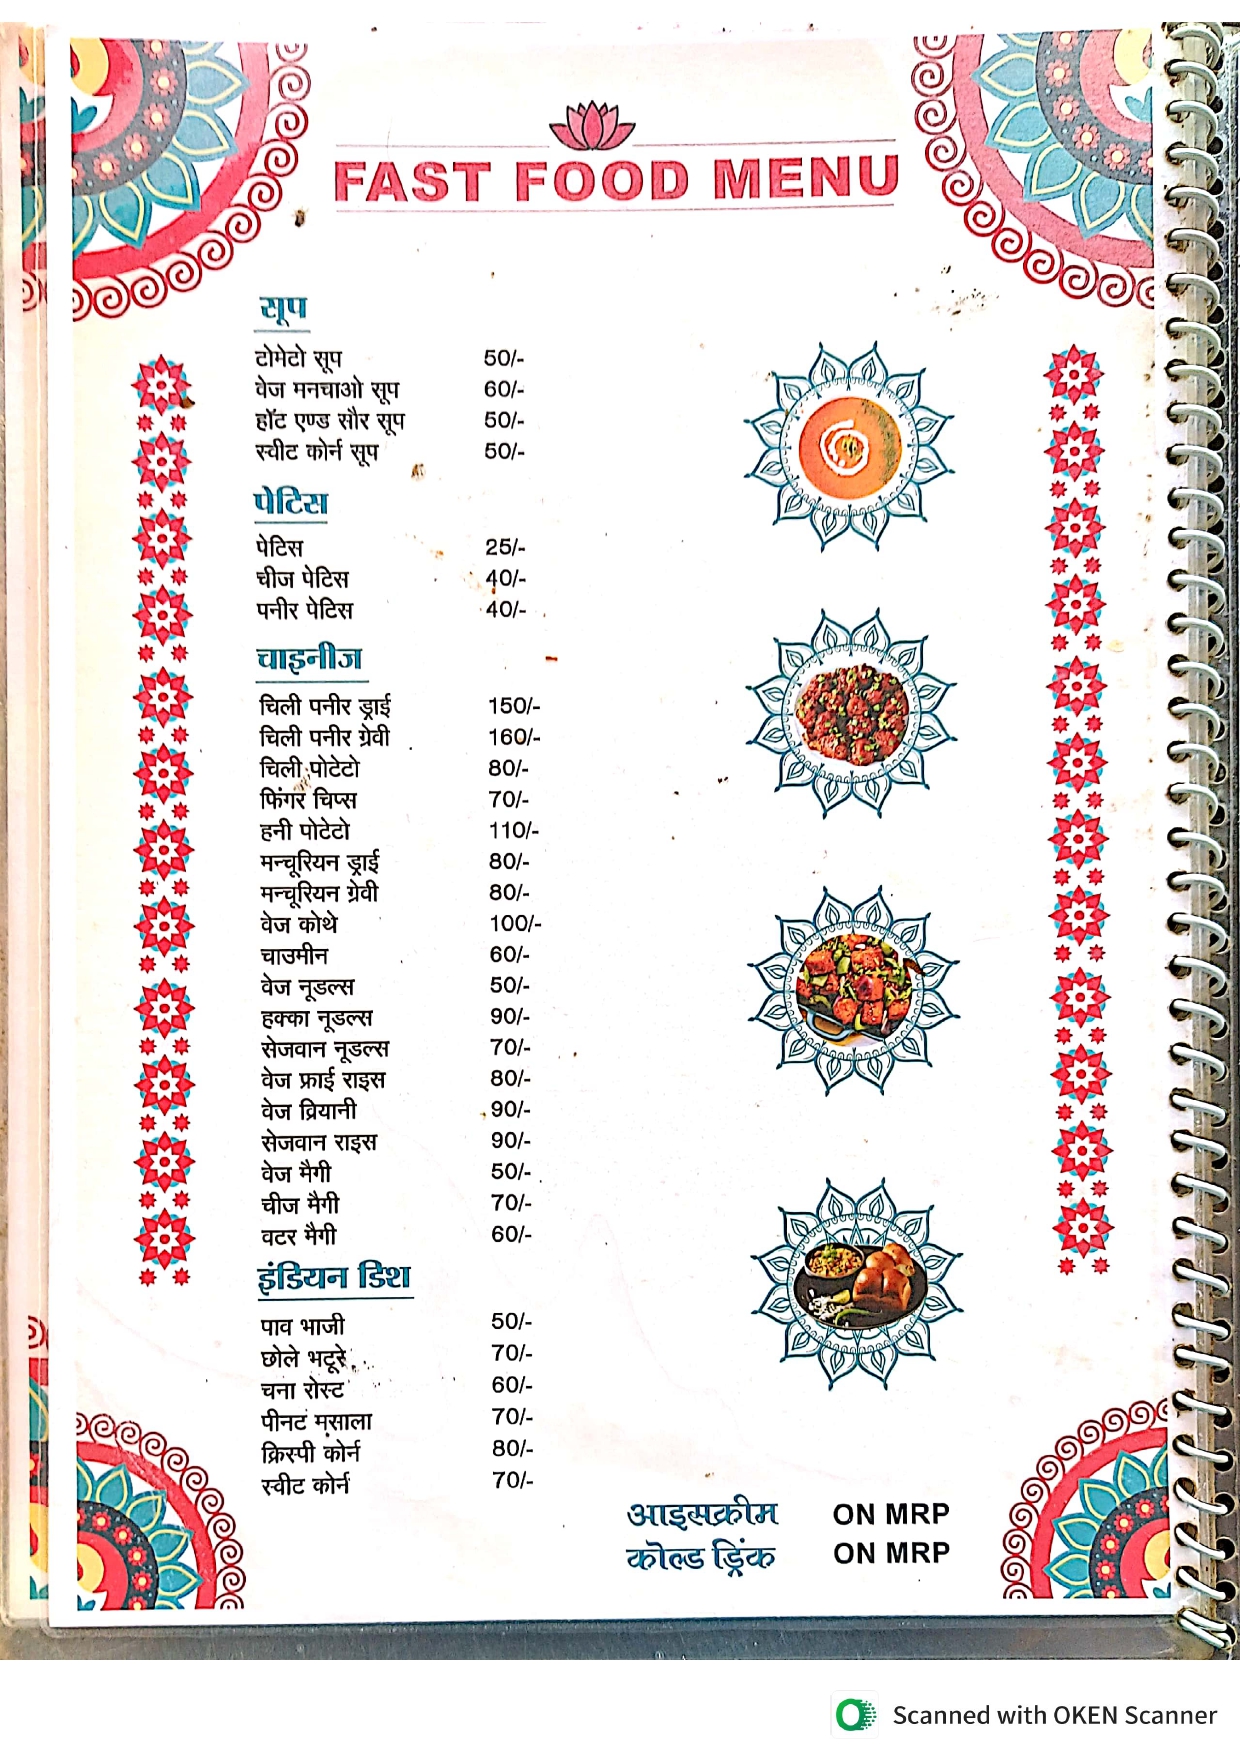 FAST FOOD MENU
सूप
टोमेटो सूप 50/-
वेज मनचाओ सूप 60/-
हॉट एण्ड सौर सूप 50/-
स्वीट कोर्न सूप 50/-
पेटिस
पेटिस 25/-
चीज पेटिस 40/-
पनीर पेटिस 40/-
चाइनीज
चिली पनीर ड्राई 150/-
चिली पनीर ग्रेवी 160/-
चिली पोटेटो 80/-
फिंगर चिप्स 70/-
हनी पोटेटो 110/-
मन्चूरियन ड्राई 80/-
मन्चूरियन ग्रेवी 80/-
वेज कोथे 100/-
चाउमीन 60/-
वेज नूडल्स 50/-
हक्का नूडल्स 90/-
सेजवान नूडल्स 70/-
वेज फ्राई राइस 80/-
वेज व्रियानी 90/-
सेजवान राइस 90/-
वेज मैगी 50/-
चीज मैगी 70/-
वटर मैगी 60/-
इंडियन डिश
पाव भाजी 50/-
छोले भटूरे 70/-
चना रोस्ट 60/-
पीनट मसाला 70/-
क्रिस्पी कोर्न 80/-
स्वीट कोर्न 70/-
आइसक्रीम ON MRP
कोल्ड ड्रिंक ON MRP
Scanned with OKEN Scanner